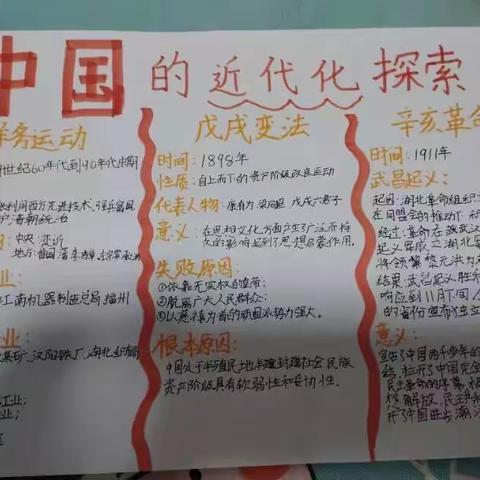 中国的近代化探索
洋务运动
世纪60年代到90年代中期
利用西方先进技术,强兵富国
清朝统治
中央:奕䜣
地方:曾国藩 李鸿章
江南机器制造总局,福州
汉阳铁厂,湖北
戊戌变法
时间:1898年
性质:自上而下的资产阶级改良运动
代表人物:康有为 梁启超 戊戌六君子
意义:在思想文化方面产生广泛而持
久的影响起到了思想启蒙作用。
失败原因:
①依靠无实权的皇帝;
②脱离广大人民群众;
③以慈禧为首的顽固派势力强大。
根本原因:
中国处于半殖民地半封建社会民族
资产阶级具有软弱性和妥协性。
辛亥革命
时间:1911年
武昌起义:
起因:湖北革命组织
在同盟会的推动下
经过:革命在武汉
起义军成立湖北军
将领黎元洪为
结果:武昌起义胜利
响应到11月下旬
的省份宣布独立
意义:
中国两千多年的
结,拉开了中国完全
民主革命的序幕,
解放,民主
中国进步潮